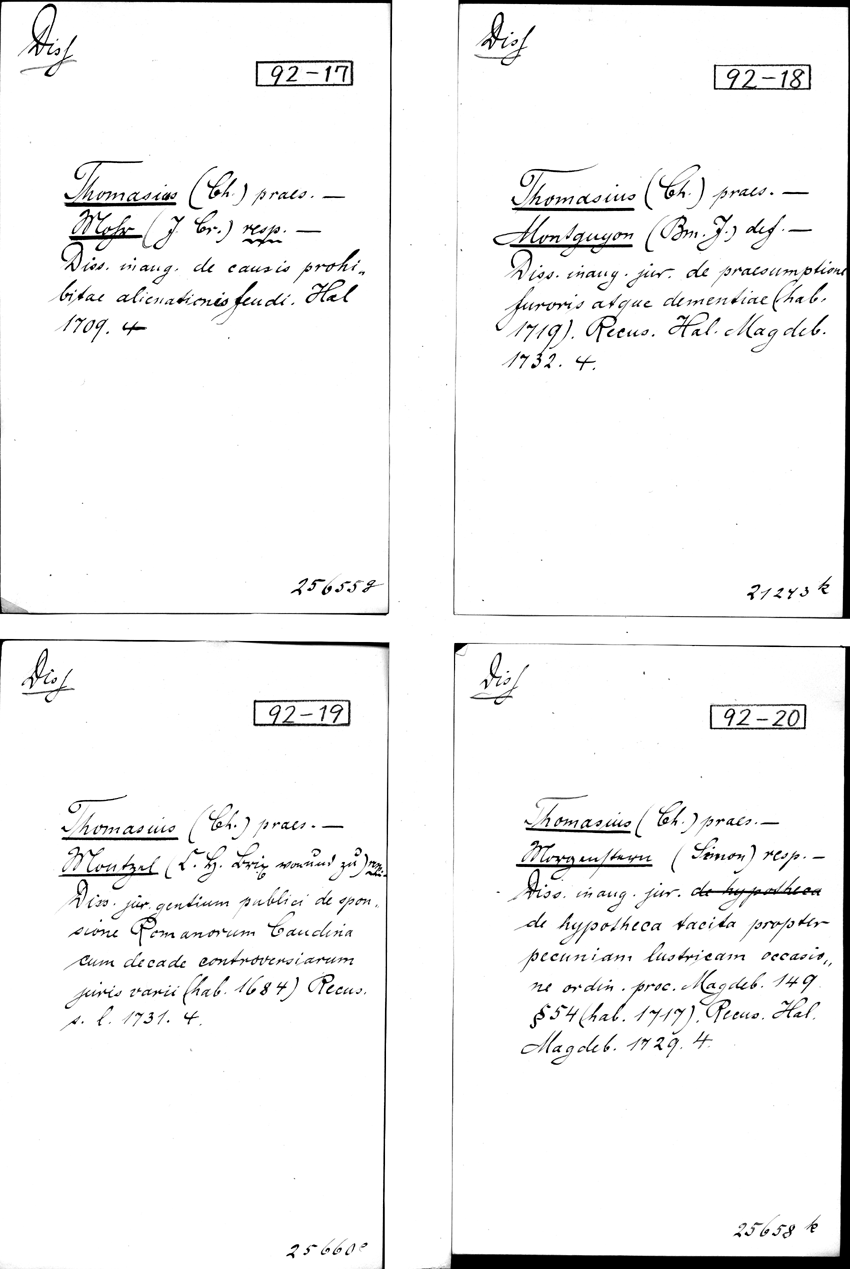 Diss
92-17
Thomasius (Ch.) praes. —
Mohr (J. Cr.) resp. —
Diss. inaug. de causis prohi-
bitae alienationis feudi. Hal
1709. 4
25655g
Diss
92-18
Thomasius (Ch.) praes. —
Montguyon (Bm. J.) def. —
Diss. inaug. jur. de praesumptione
furoris atque dementiae (hab.
1719). Recus. Hal. Magdeb.
1732. 4.
21243 k
Diss
92-19
Thomasius (Ch.) praes. —
Montzel (L. H. Brix von und zu)
Diss. jur. gentium publici de spon-
sione Romanorum Caudina
cum decade controversiarum
juris varii (hab. 1684) Recus.
s. l. 1731. 4.
25660e
Diss
92-20
Thomasius (Ch.) praes. —
Morgenstern (Simon) resp. —
Diss. inaug. jur. de hypotheca
de hypotheca tacita propter
pecuniam lustricam occasio-
ne ordin. proc. Magdeb. 149
§54 (hab. 1717). Recus. Hal.
Magdeb. 1729. 4.
25658 k